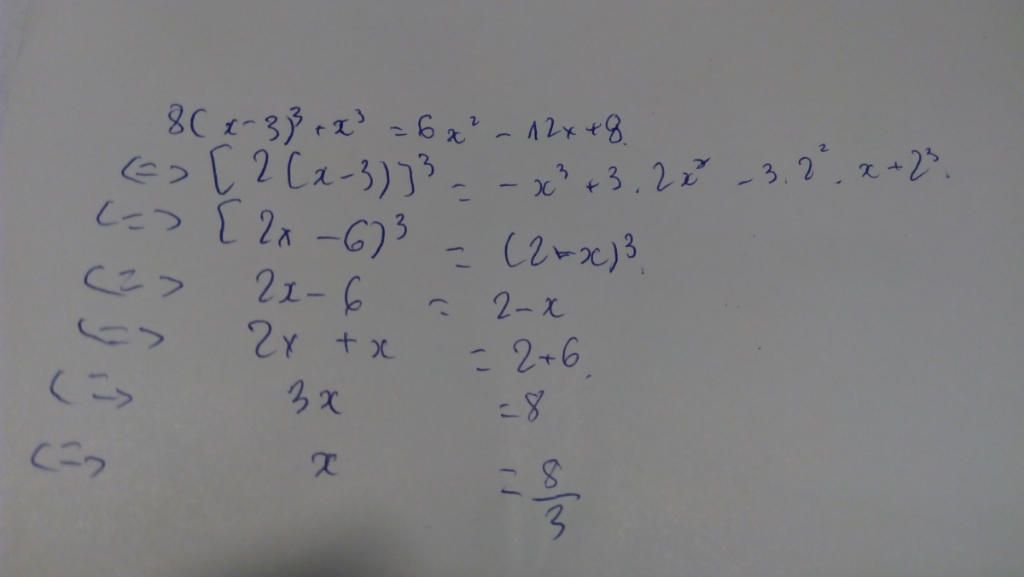 8(x-3)³+x³ = 6x² - 12x + 8.
<=> [2(x-3)]³ = -x³ + 3.2x² - 3.2².x + 2³.
<=> [2x - 6)³ = (2-x)³.
<=> 2x - 6 = 2 - x
<=> 2x + x = 2+6.
<=> 3x = 8
<=> x = 8/3